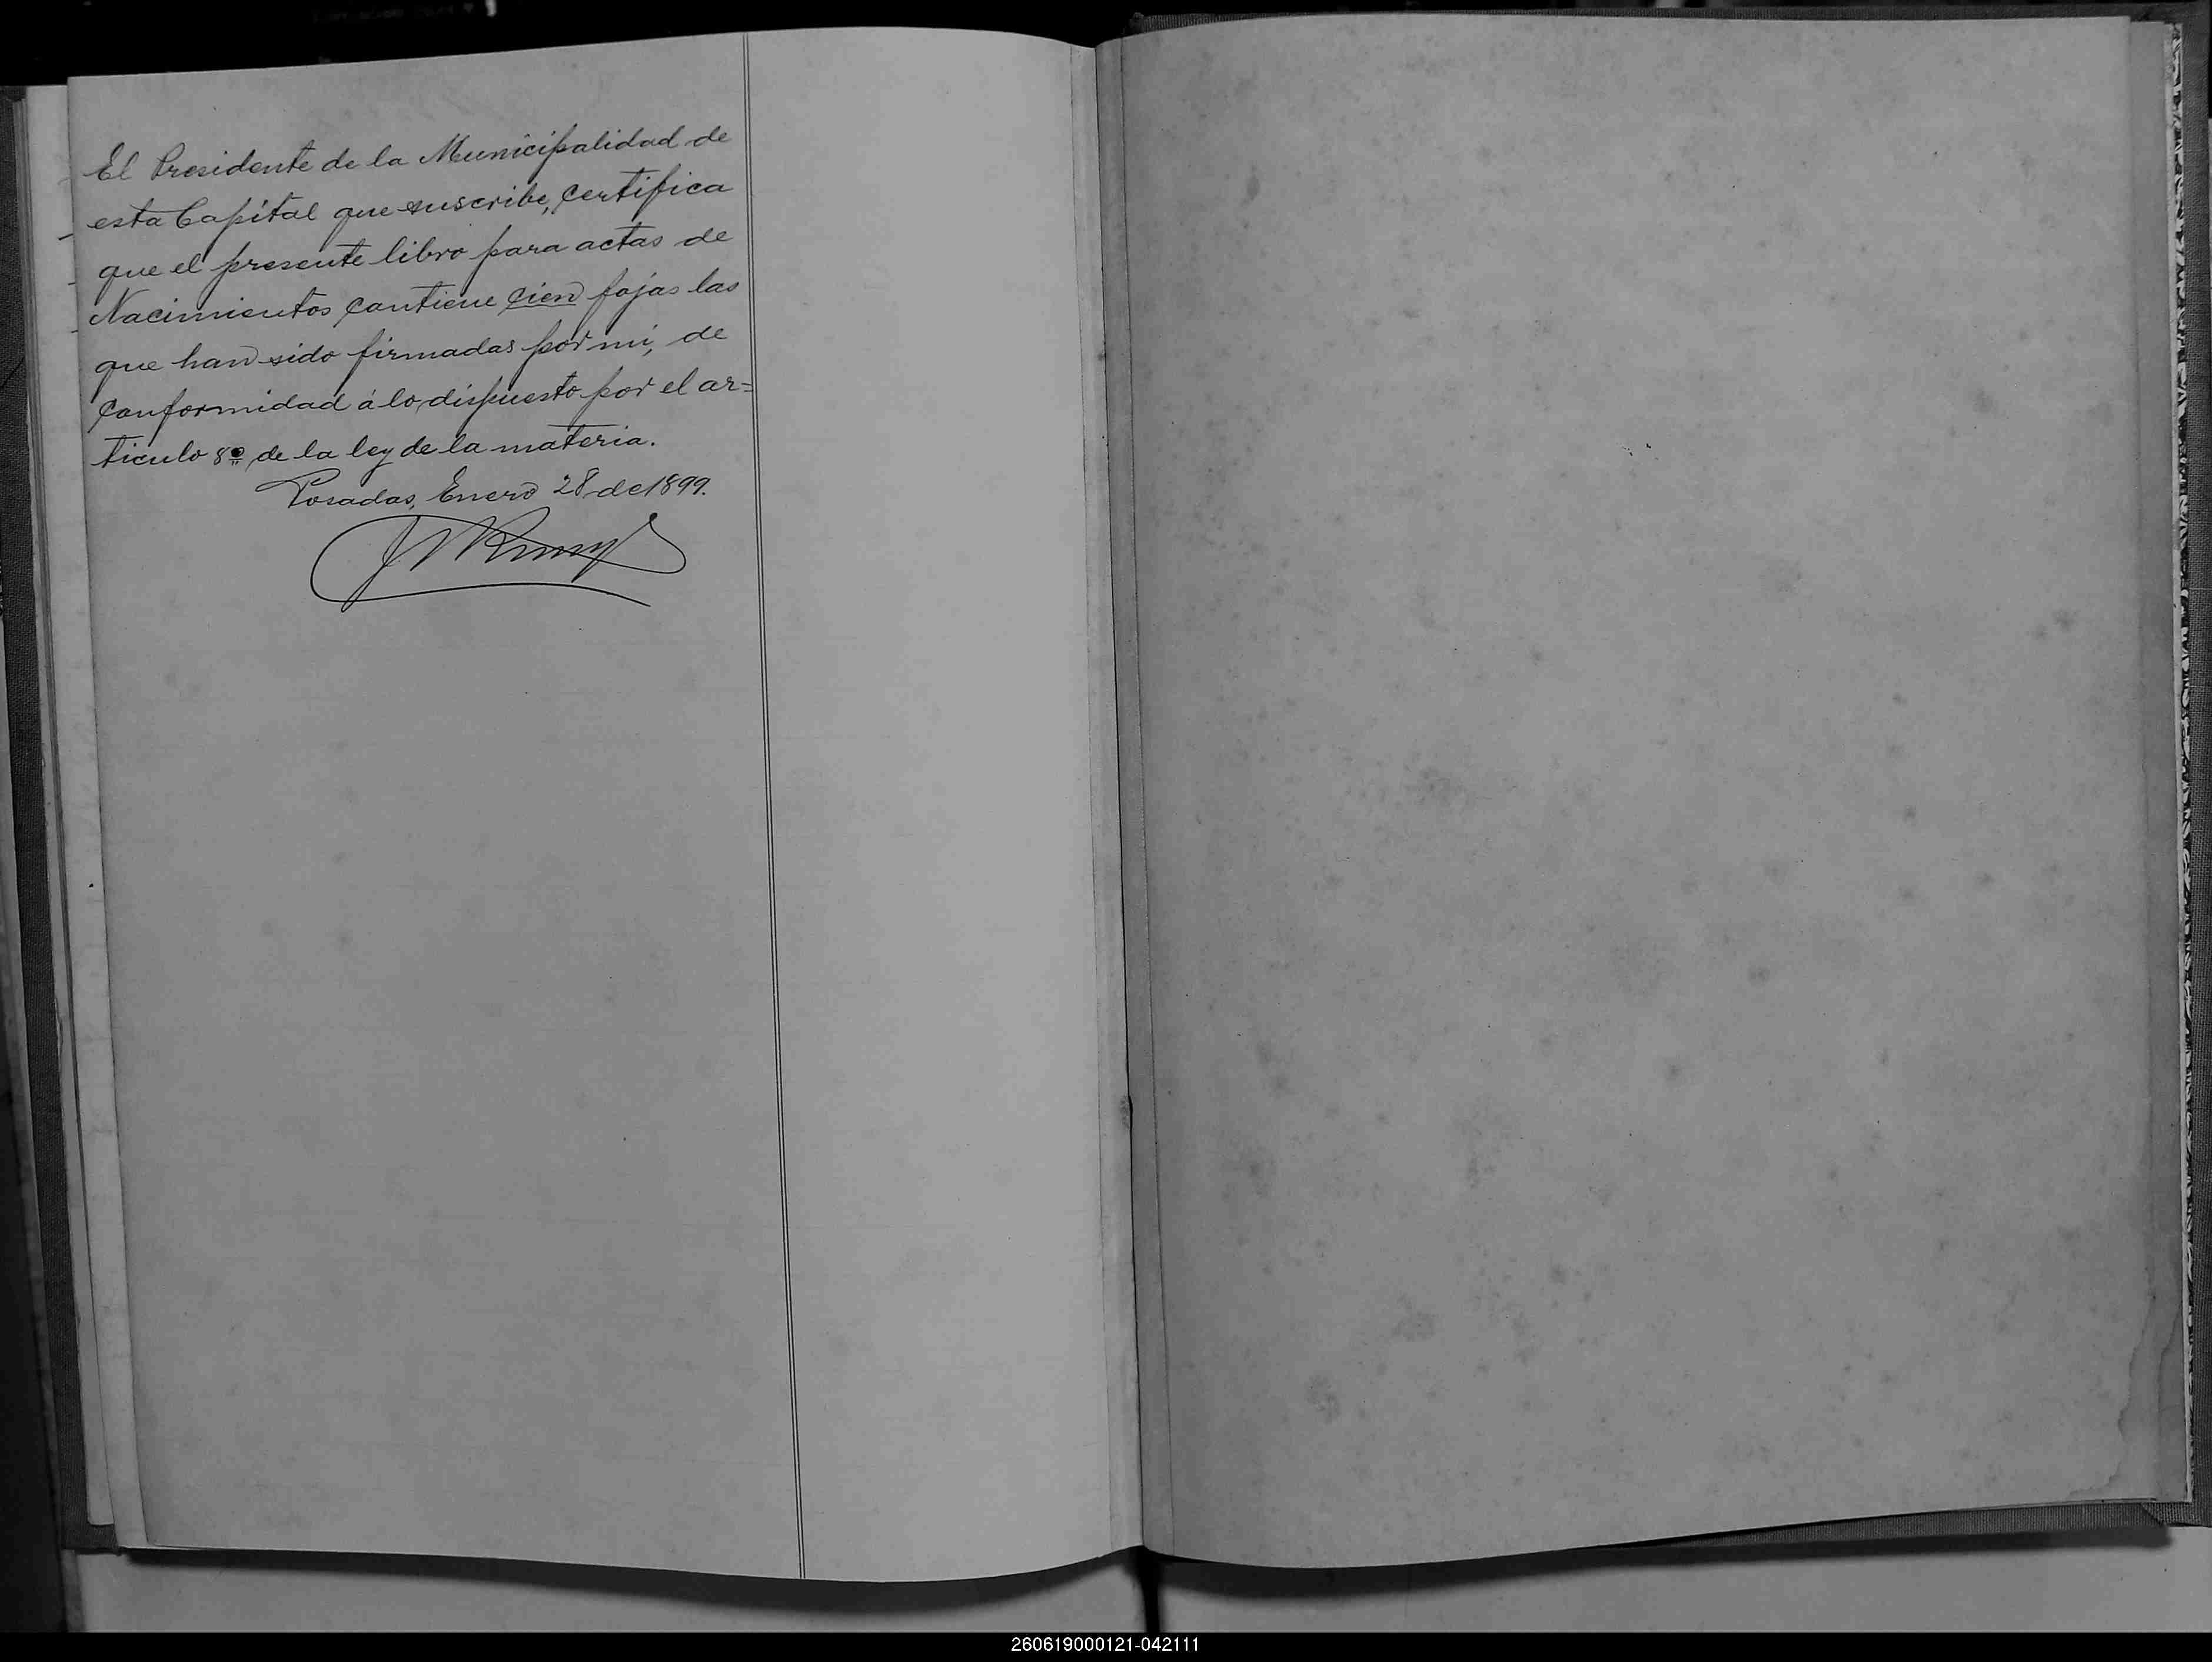 El Presidente de la Municipalidad de
esta Capital que suscribe, certifica
que el presente libro para actas de
Nacimientos contiene cien fojas las
que han sido firmadas por mi, de
conformidad á lo dispuesto por el ar=
ticulo 8º de la ley de la materia.
Posadas, Enero 28 de 1899.
260619000121-042111